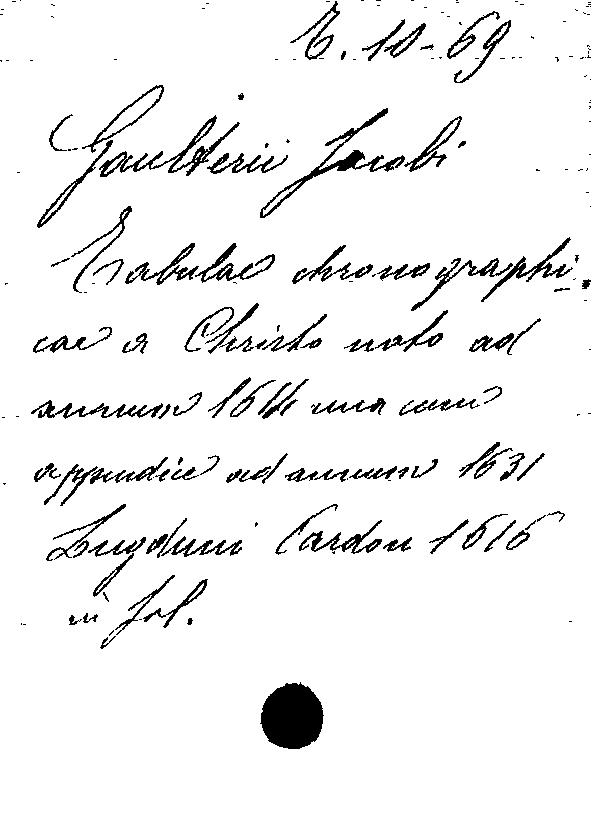 E. 10-69
Gaulterii Jacobi
Tabulae chronographi-
cae a Christo nato ad
annum 1614 una cum
appendice ad annum 1631
Lugduni Cardon 1616
in fol.